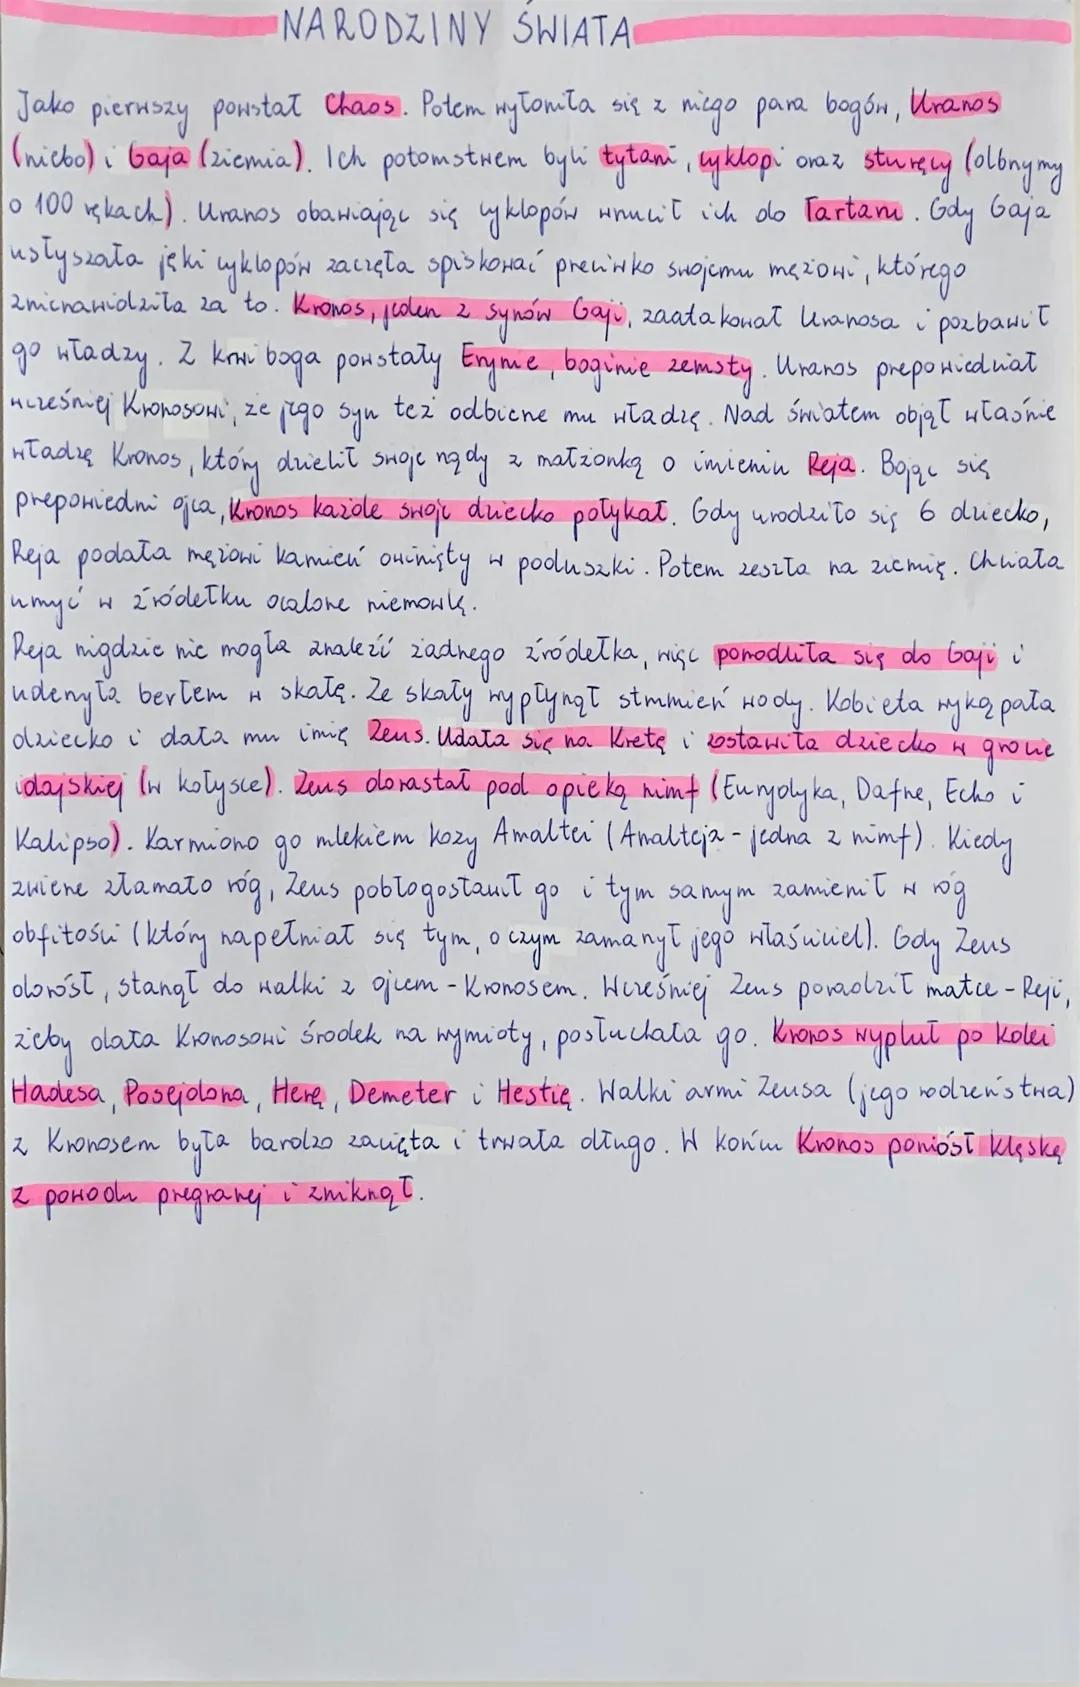 NARODZINY ŚWIATA
Jako pierwszy powstał Chaos. Potem wyłoniła się z niego para bogów, Uranos
(niebo) i Gaja (ziemia). Ich potomstwem byli tytani, cyklopi oraz sturęcy (olbrzymy
o 100 rękach). Uranos obawiając się cyklopów wrzucił ich do Tartaru. Gdy Gaja
usłyszała jęki cyklopów zaczęła spiskować przeciwko swojemu mężowi, którego
znienawidziła za to. Kronos, jeden z synów Gaji, zaatakował Uranosa i pozbawił
go władzy. Z krwi boga powstały Erynie, boginie zemsty. Uranos przepowiedział
wcześniej Kronosowi, że jego syn też odbierze mu władzę. Nad światem objął właśnie
władzę Kronos, który dzielił swoje rządy z małżonką o imieniu Reja. Bojąc się
przepowiedni ojca, Kronos każde swoje dziecko połykał. Gdy urodziło się 6 dziecko,
Reja podała mężowi kamień owinięty w poduszki. Potem zeszła na ziemię. Chciała
umyć w źródełku ocalone niemowlę.
Reja nigdzie nie mogła znaleźć żadnego źródełka, więc pomodliła się do Gaji i
uderzyła berłem w skałę. Ze skały wypłynął strumień wody. Kobieta wykąpała
dziecko i dała mu imię Zeus. Udała się na Kretę i zostawiła dziecko w grocie
idajskiej (w kołysce). Zeus dorastał pod opieką nimf (Eurydyka, Dafne, Echo i
Kalipso). Karmiono go mlekiem kozy Amaltei (Amalteja - jedna z nimf). Kiedy
zwierze złamało róg, Zeus pobłogosławił go i tym samym zamienił w róg
obfitości (który napełniał się tym, o czym zamarzył jego właściciel). Gdy Zeus
dorósł, stanął do walki z ojcem - Kronosem. Wcześniej Zeus poradził matce - Reji,
żeby dała Kronosowi środek na wymioty, posłuchała go. Kronos wypluł po kolei
Hadesa, Posejdona, Herę, Demeter i Hestię. Walki armi Zeusa (jego rodzeństwa)
z Kronosem była bardzo zacięta i trwała długo. W końcu Kronos poniósł klęskę
z powodu przegranej i zniknął.